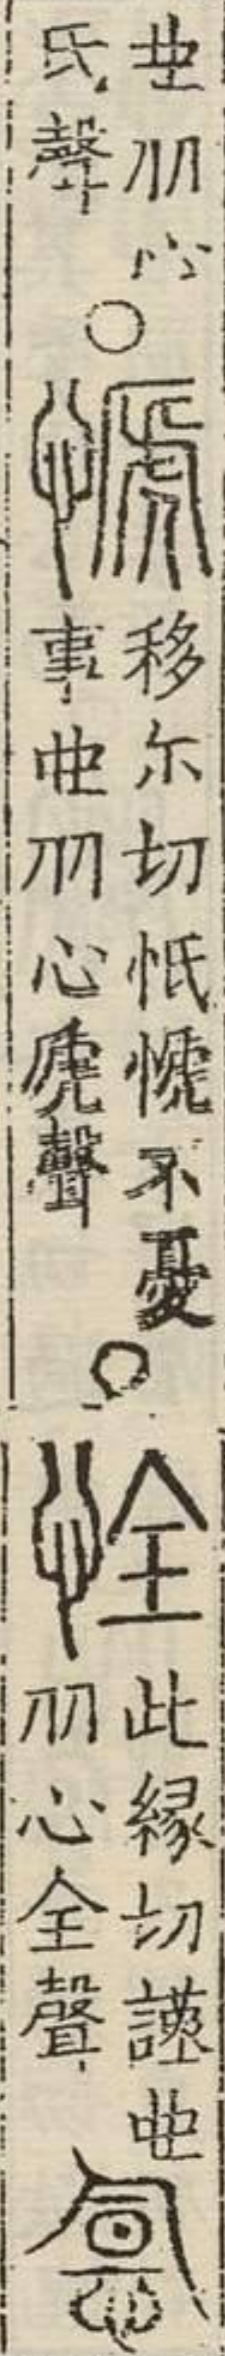 也从心
氏聲
○
㥴
移尔切忯㥴不憂
事也从心虒聲
○
恮
此緣切謹也
从心全聲